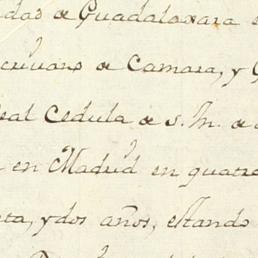 dad de Guadalaxara
crivano de Camara, y
eal Cedula de S. M. de
en Madrid en quatro
ta, y dos años, estando